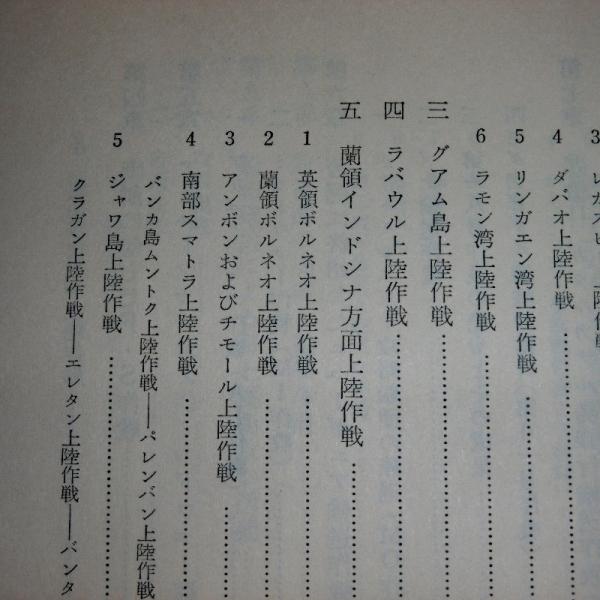 3 レガスピー上陸作戦
4 ダバオ上陸作戦
5 リンガエン湾上陸作戦
6 ラモン湾上陸作戦
三 グアム島上陸作戦
四 ラバウル上陸作戦
五 蘭領インドシナ方面上陸作戦
1 英領ボルネオ上陸作戦
2 蘭領ボルネオ上陸作戦
3 アンボンおよびチモール上陸作戦
4 南部スマトラ上陸作戦
バンカ島ムントク上陸作戦――パレンバン上陸作戦
5 ジャワ島上陸作戦
クラガン上陸作戦――エレタン上陸作戦――バンタ